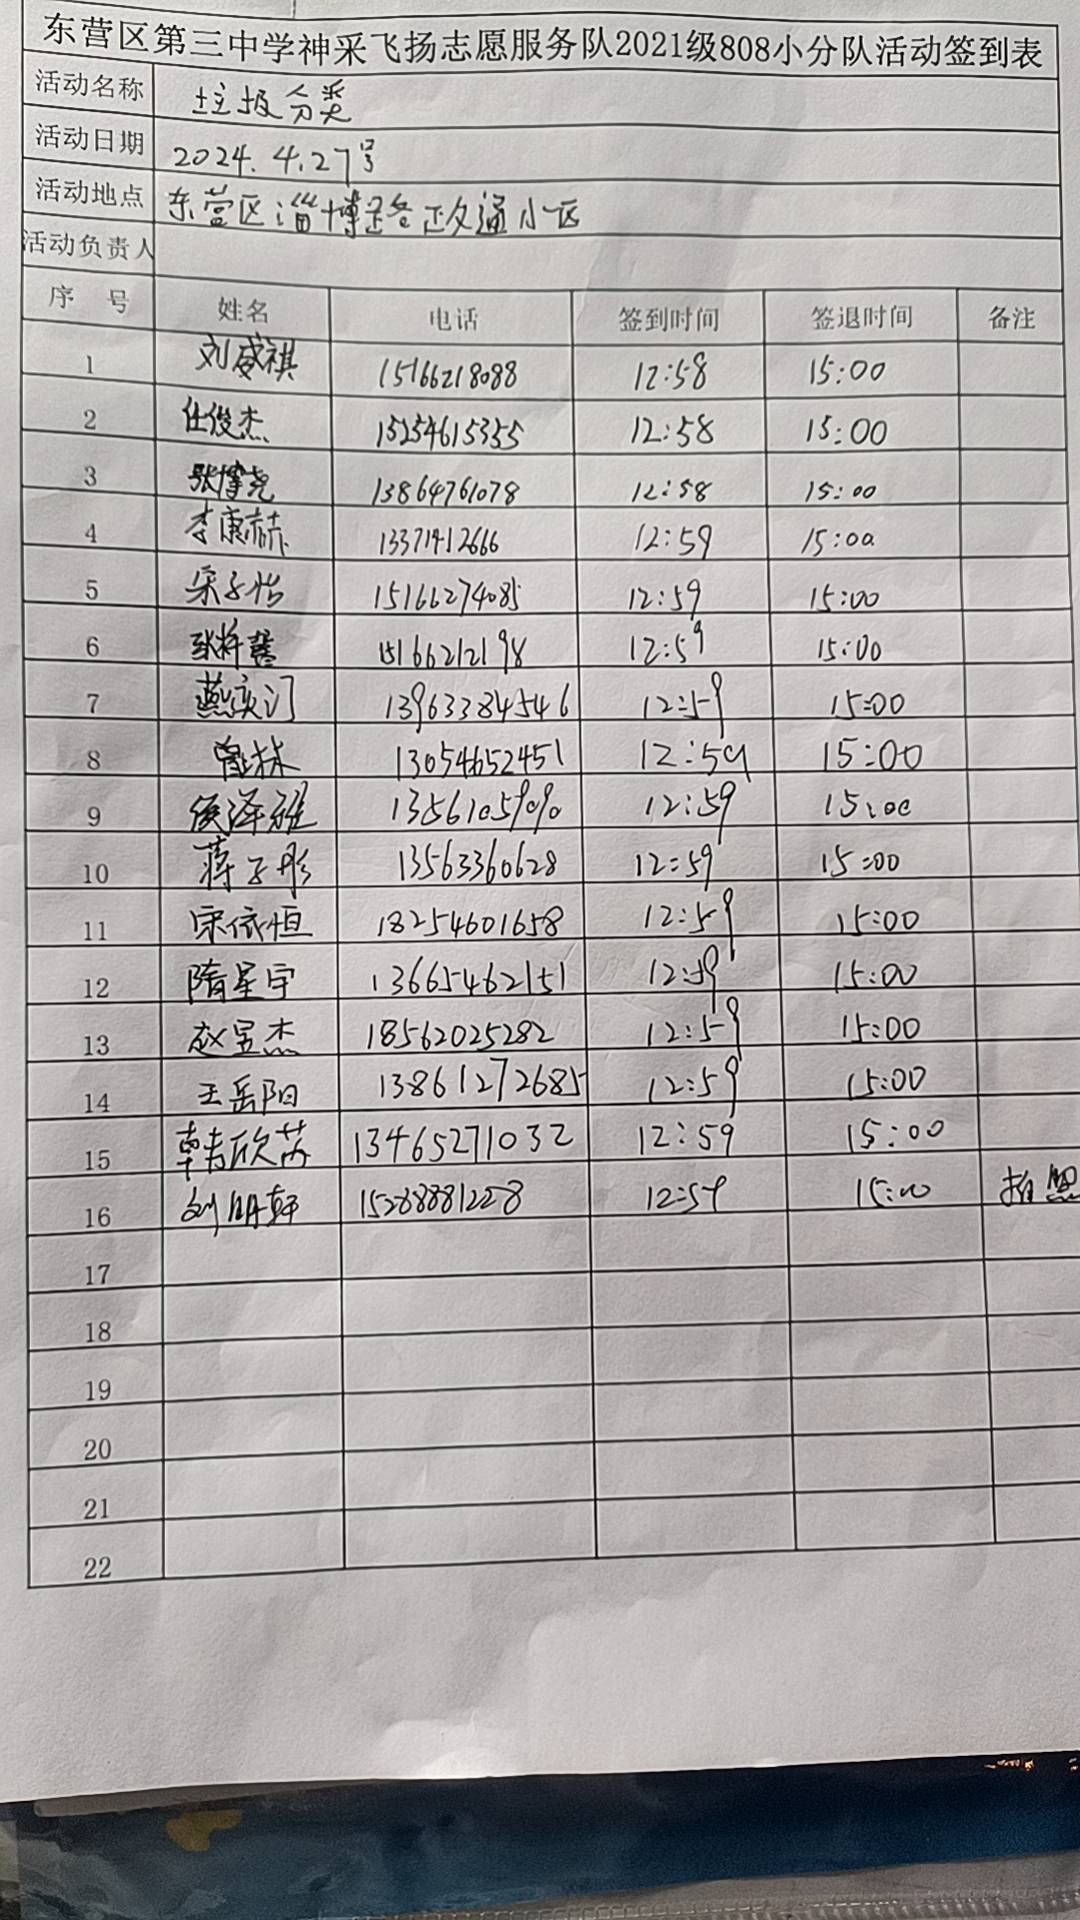 东营区第三中学神采飞扬志愿服务队2021级808小分队活动签到表
活动名称 垃圾分类
活动日期 2024.4.27号
活动地点 东营区淄博路政通小区
活动负责人
序 号 姓名 电话 签到时间 签退时间 备注
1 刘威祺 15166218088 12:58 15:00
2 任俊杰 15254615355 12:58 15:00
3 13864761078 12:58 15:00
4 李康赫 13371412666 12:59 15:00
5 宋子怡 15166274085 12:59 15:00
6 15166212198 12:59 15:00
7 13963384546 12:59 15:00
8 13054652451 12:59 15:00
9 侯泽雅 13561059090 12:59 15:00
10 蒋子彤 13563360628 12:59 15:00
11 宋依恒 18254601658 12:59 15:00
12 隋星宇 13665462151 12:59 15:00
13 赵昱杰 18562025282 12:59 15:00
14 王岳阳 13861272685 12:59 15:00
15 韩欣芮 13465271032 12:59 15:00
16 刘明轩 15288881228 12:59 15:00 拍照
17
18
19
20
21
22